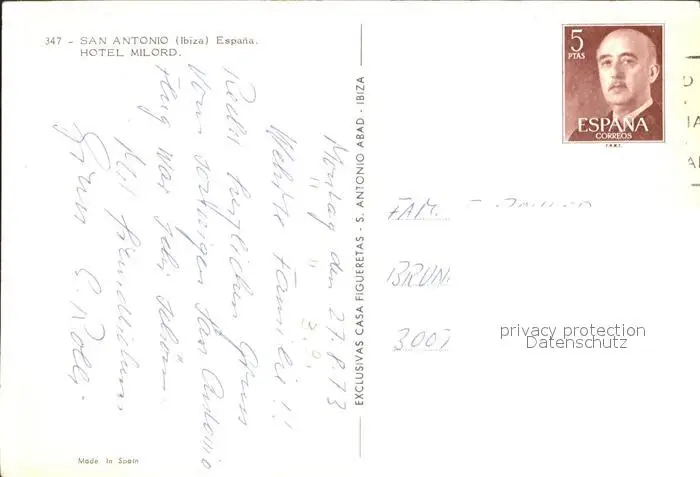 347 - SAN ANTONIO (Ibiza) España.
HOTEL MILORD.
Montag den 27.8.73
Werte Familie!!
Recht herzlichen Gruss
vom sonnigen San Antonio
Flug war sehr schön.
Mit freundlichem
Gruss E. Rolli
EXCLUSIVAS CASA FIGUERETAS - S. ANTONIO ABAD - IBIZA
5
PTAS
ESPAÑA
CORREOS
F.N.M.T.
FAM.
BRUN
3007
privacy protection
Datenschutz
Made In Spain